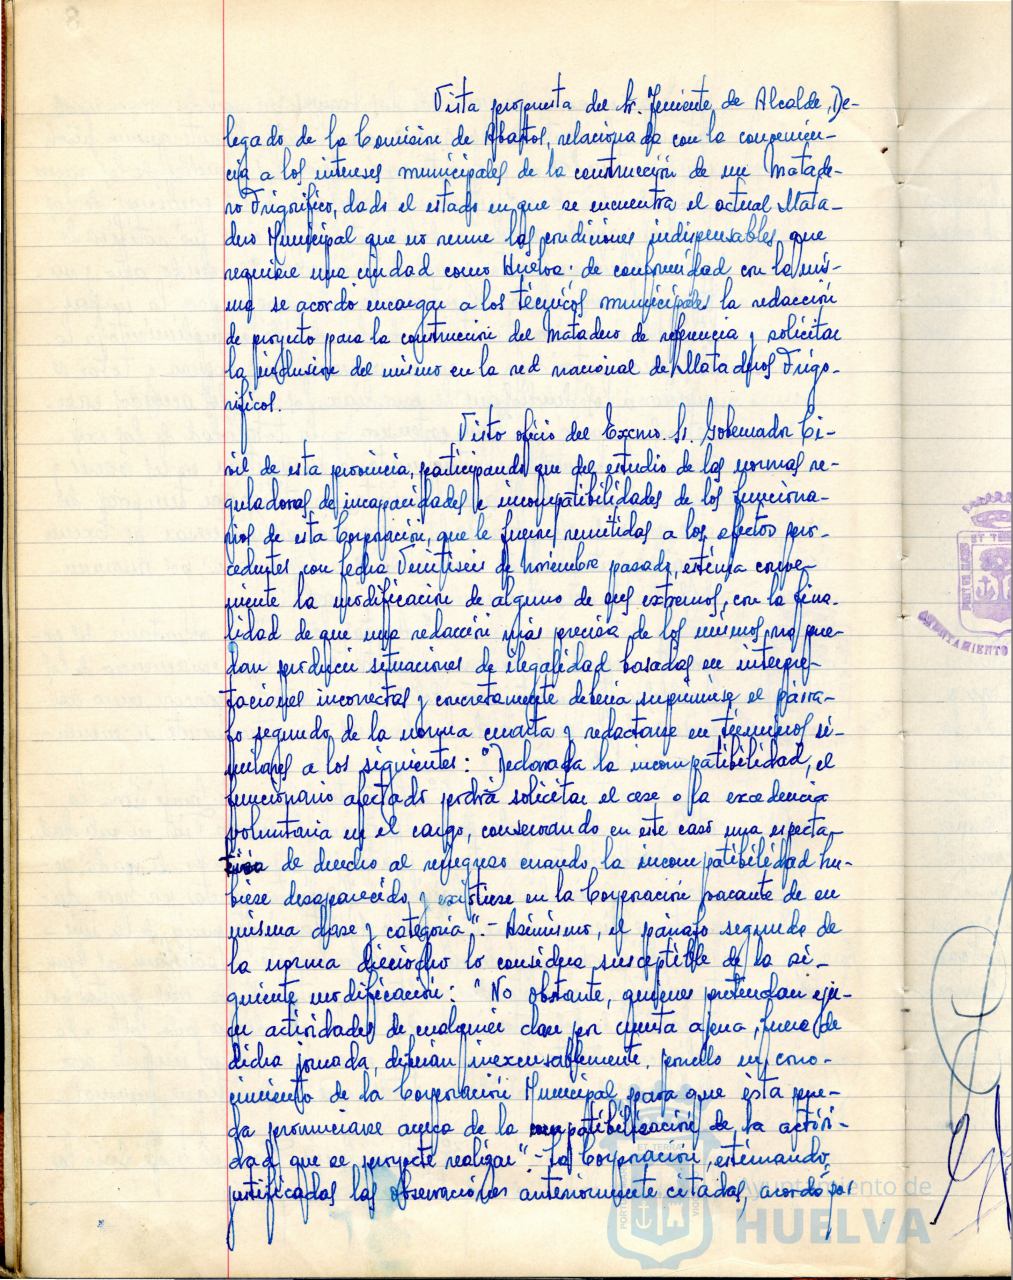 Vista propuesta del Sr. Teniente de Alcalde, De-
legado de la Comisión de Abastos, relacionada con la convenien-
cia a los intereses municipales de la construcción de un Matade-
ro Frigorífico, dado el estado en que se encuentra el actual Mata-
dero Municipal que no reune las condiciones indispensables que
requiere una ciudad como Huelva: de conformidad con la mis-
ma se acordó encargar a los técnicos municipales la redacción
de proyecto para la construcción del Matadero de referencia y solicitar
la inclusión del mismo en la red nacional de Mataderos Frigo-
ríficos.
Visto oficio del Excmo. Sr. Gobernador Ci-
vil de esta provincia, participando que del estudio de las normas re-
guladoras de incapacidades e incompatibilidades de los funciona-
rios de esta Corporación, que le fueron remitidas a los efectos pro-
cedentes con fecha Veintiseis de noviembre pasado, estima conve-
niente la modificación de alguno de sus extremos, con la fina-
lidad de que una redacción más precisa de los mismos no pue-
dan producir situaciones de ilegalidad basadas en interpre-
taciones incorrectas y concretamente debería suprimirse el párra-
fo segundo de la norma cuarta y redactarse en términos si-
milares a los siguientes: "Declarada la incompatibilidad, el
funcionario afectado podrá solicitar el cese o la excedencia
voluntaria en el cargo, conservando en este caso una expecta-
tiva de derecho al reingreso cuando la incompatibilidad hu-
biese desaparecido y existiese en la Corporación vacante de su
misma clase y categoría".- Asimismo, el párrafo segundo de
la norma dieciocho lo considera susceptible de la si-
guiente modificación: "No obstante, quienes pretendan ejer-
cer actividades de cualquier clase por cuenta ajena, fuera de
dicha jornada, deberán inexcusablemente, ponerlo en cono-
cimiento de la Corporación Municipal para que ésta pue-
da pronunciarse acerca de la compatibilización de la activi-
dad que se proyecte realizar".- La Corporación, estimando
justificadas las observaciones anteriormente citadas, acordó por
Ayuntamiento de
HUELVA
AYUNTAMIENTO